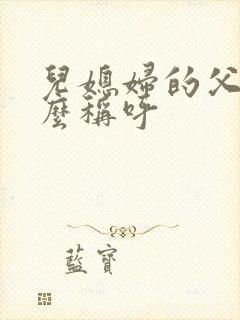 兒媳婦的父
麼稱呼
藍寶